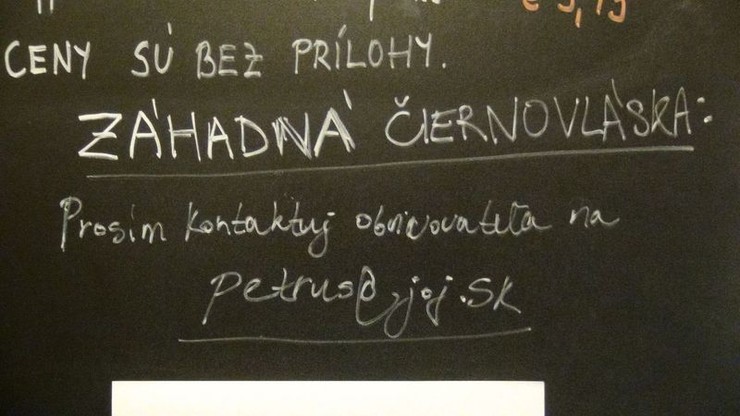 CENY SÚ BEZ PRÍLOHY.
ZÁHADNÁ ČIERNOVLÁSKA:
Prosím kontaktuj obdivovateľa na
petrus@joj.sk